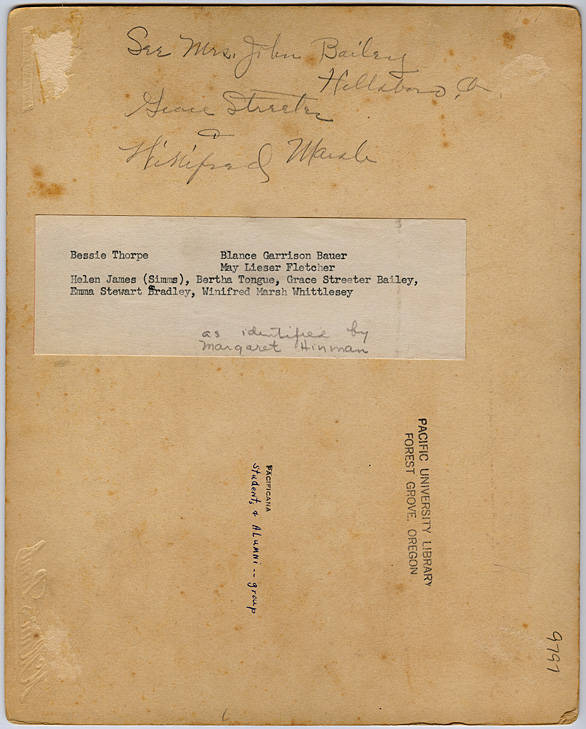 See Mrs. John Bailey
Hillsboro, O
Gracie Streeter
&
Winifred Marsh
Bessie Thorpe Blance Garrison Bauer
May Lieser Fletcher
Helen James (Simms), Bertha Tongue, Grace Streeter Bailey,
Emma Stewart Bradley, Winifred Marsh Whittlesey
as identified by
Margaret Hinman
PACIFIC UNIVERSITY LIBRARY
FOREST GROVE, OREGON
PACIFICANA
Students & ALUMNI -- group
9797